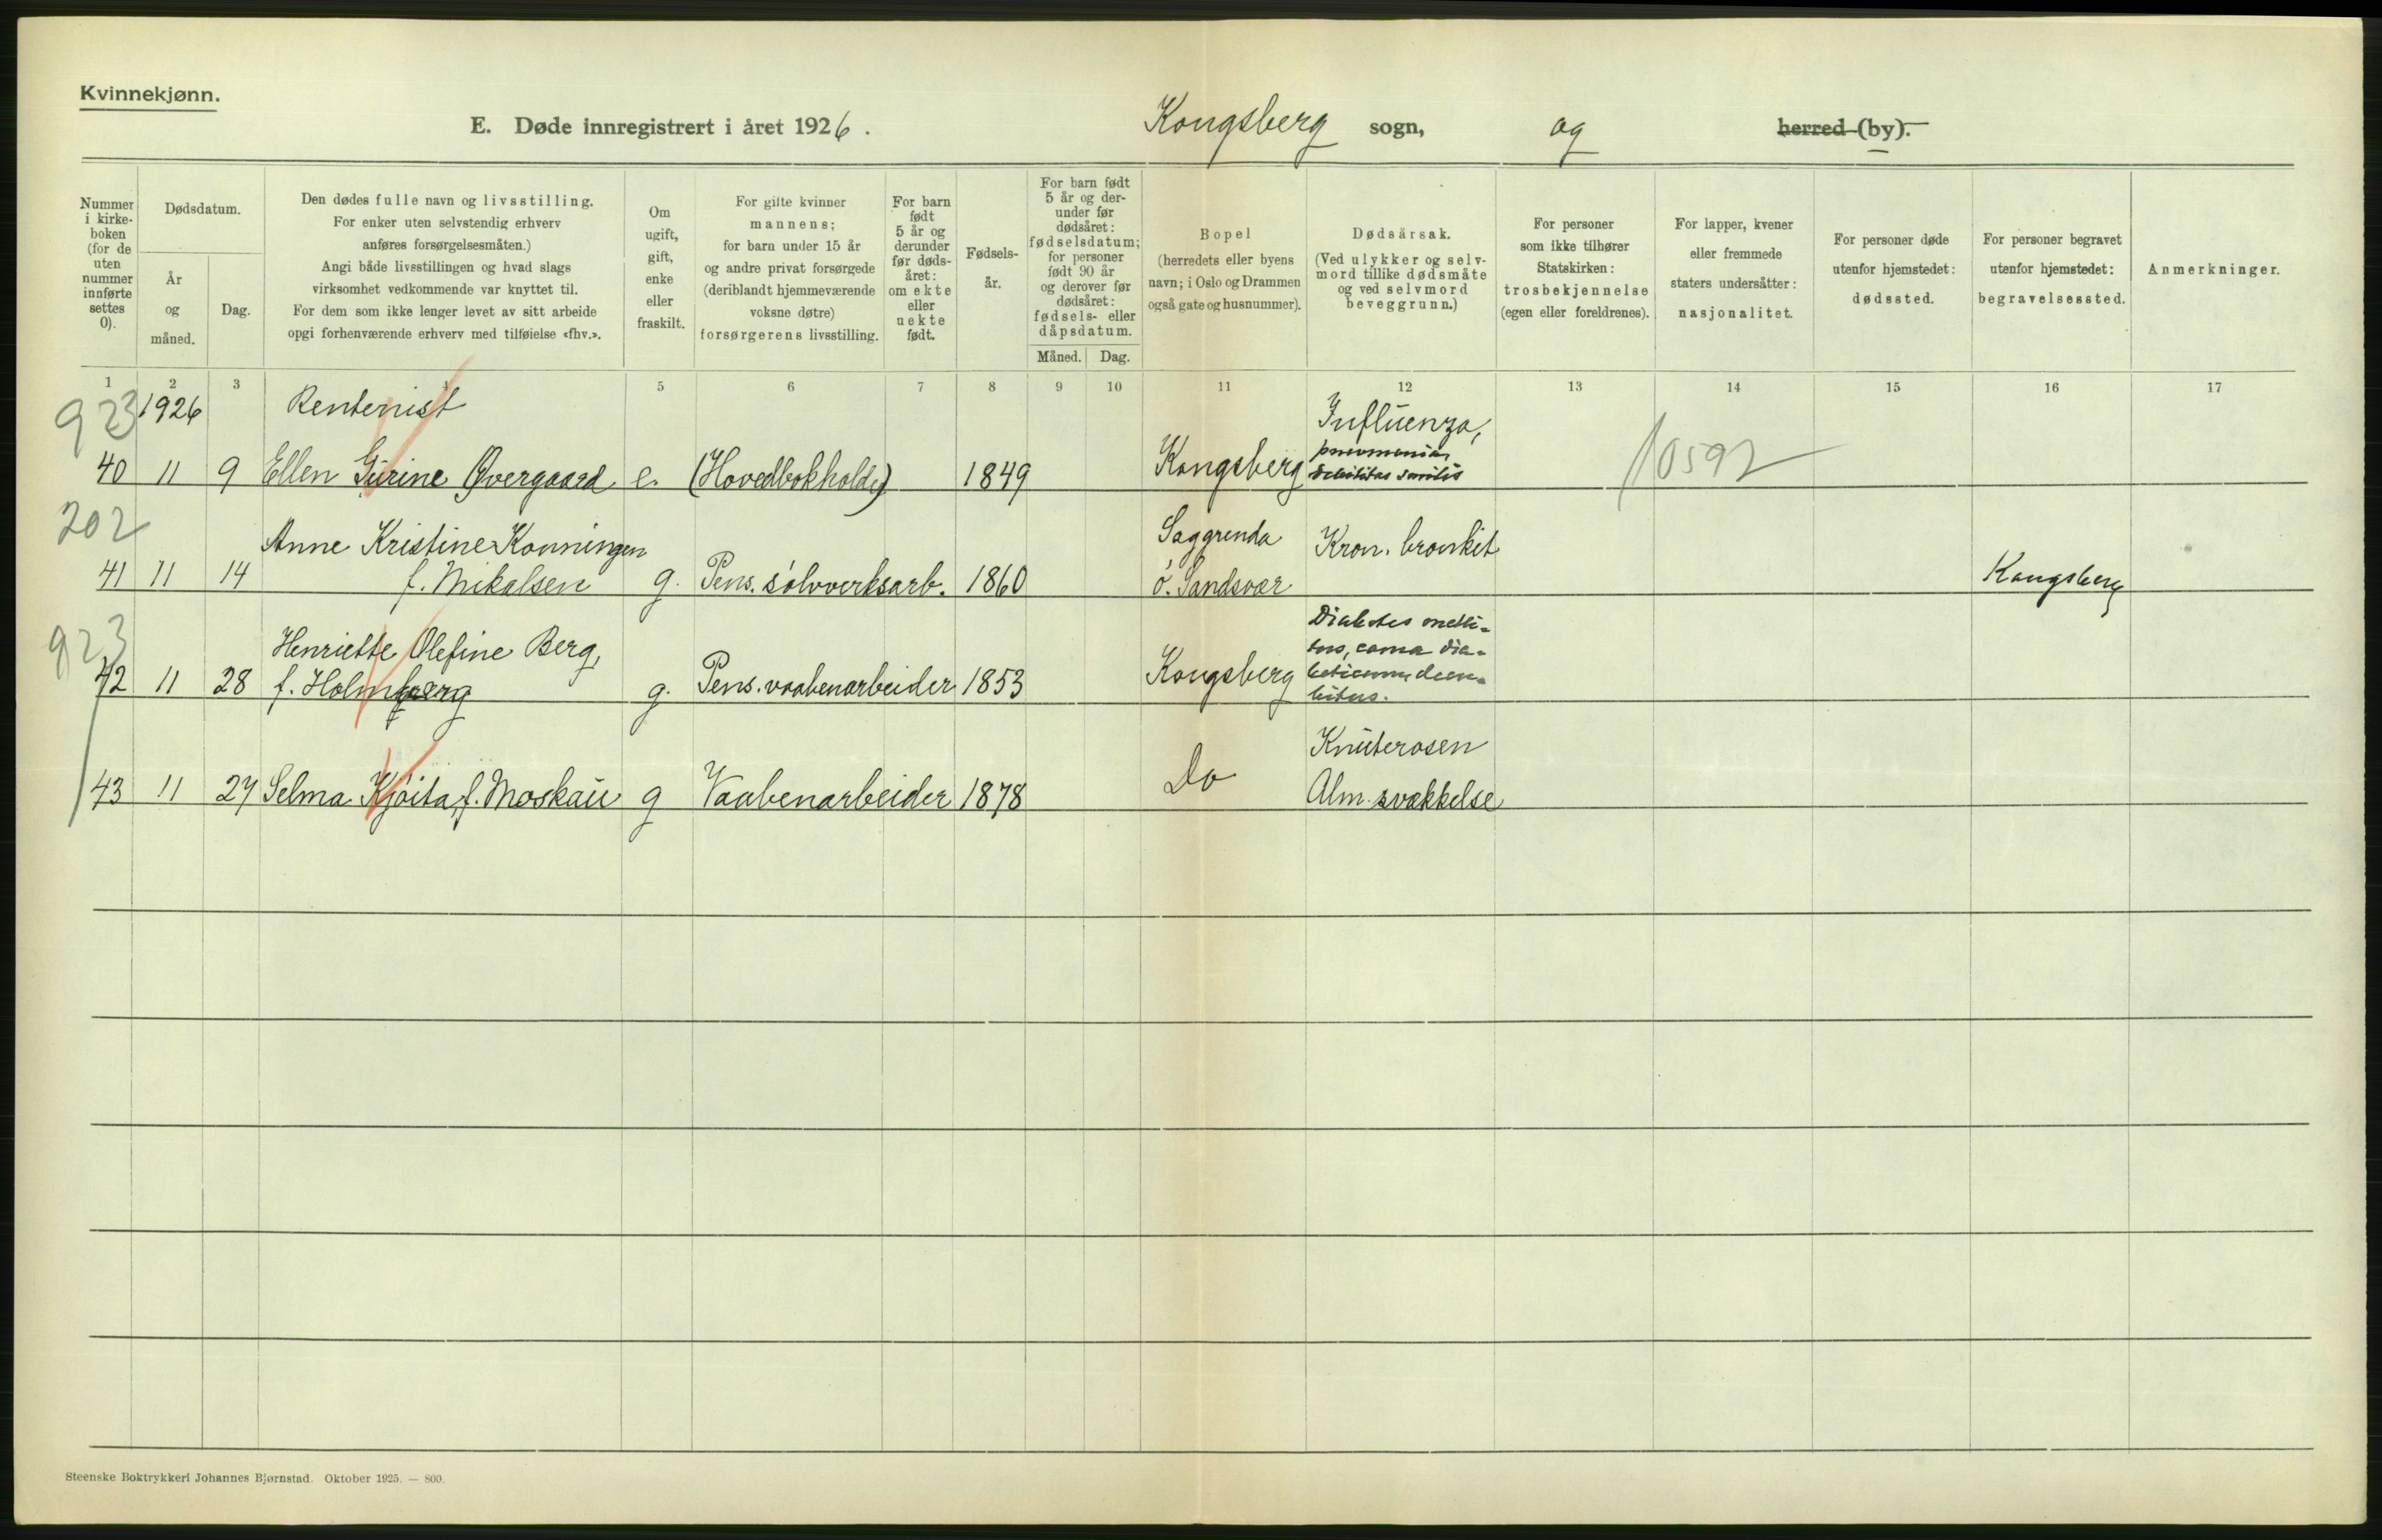 Kvinnekjønn.
E. Døde innregistrert i året 1926. Kongsberg sogn, og herred (by).
Nummer i kirke- boken (for de uten nummer innførte settes 0).
Dødsdatum.
År og måned.
Dag.
Den dødes fulle navn og livsstilling.
For enker uten selvstendig erhverv
anføres forsørgelsesmåten.)
Angi både livsstillingen og hvad slags
virksomhet vedkommende var knyttet til.
For dem som ikke lenger levet av sitt arbeide
opgi forhenværende erhverv med tilføielse «fhv.».
Om ugift, gift, enke eller fraskilt.
For gifte kvinner
mannens;
for barn under 15 år
og andre privat forsørgede
(deriblandt hjemmeværende
voksne døtre)
forsørgerens livsstilling.
For barn født 5 år og derunder før døds- året: om ekte eller uekte født.
Fødsels- år.
For barn født
5 år og der-
under før
dødsåret:
fødselsdatum;
for personer
født 90 år
og derover før
dødsåret:
fødsels- eller
dåpsdatum.
Måned. Dag.
Bopel
(herredets eller byens
navn; i Oslo og Drammen
også gate og husnummer).
Dødsårsak.
(Ved ulykker og selv-
mord tillike dødsmåte
og ved selvmord
beveggrunn.)
For personer
som ikke tilhører
Statskirken:
trosbekjennelse
(egen eller foreldrenes).
For lapper, kvener
eller fremmede
staters undersåtter:
nasjonalitet.
For personer døde
utenfor hjemstedet:
dødssted.
For personer begravet
utenfor hjemstedet:
begravelsessted.
Anmerkninger.
1 2 3 4 5 6 7 8 9 10 11 12 13 14 15 16 17
923 1926 Rentenist Influenza,
pneumonia,
40 11 9 Ellen Gurine Øvergaard e. (Hovedbokholder) 1849 Kongsberg debilitas senilis 10592
202 Anne Kristine Konningen Saggrenda Kron. bronkit
41 11 14 f. Mikalsen g. Pens. sölvverksarb. 1860 ö. Sandsvær Kongsberg
923 Henriette Olefine Berg, Diabetes melli-
tus, coma dia-
42 11 28 f. Holmberg g. Pens. vaabenarbeider 1853 Kongsberg beticum, decu-
bitus.
Knuterosen
43 11 27 Selma Kjöita, f. Moskau g Vaabenarbeider 1878 Do Alm. svækkelse
Steenske Boktrykkeri Johannes Bjørnstad. Oktober 1925. — 800.